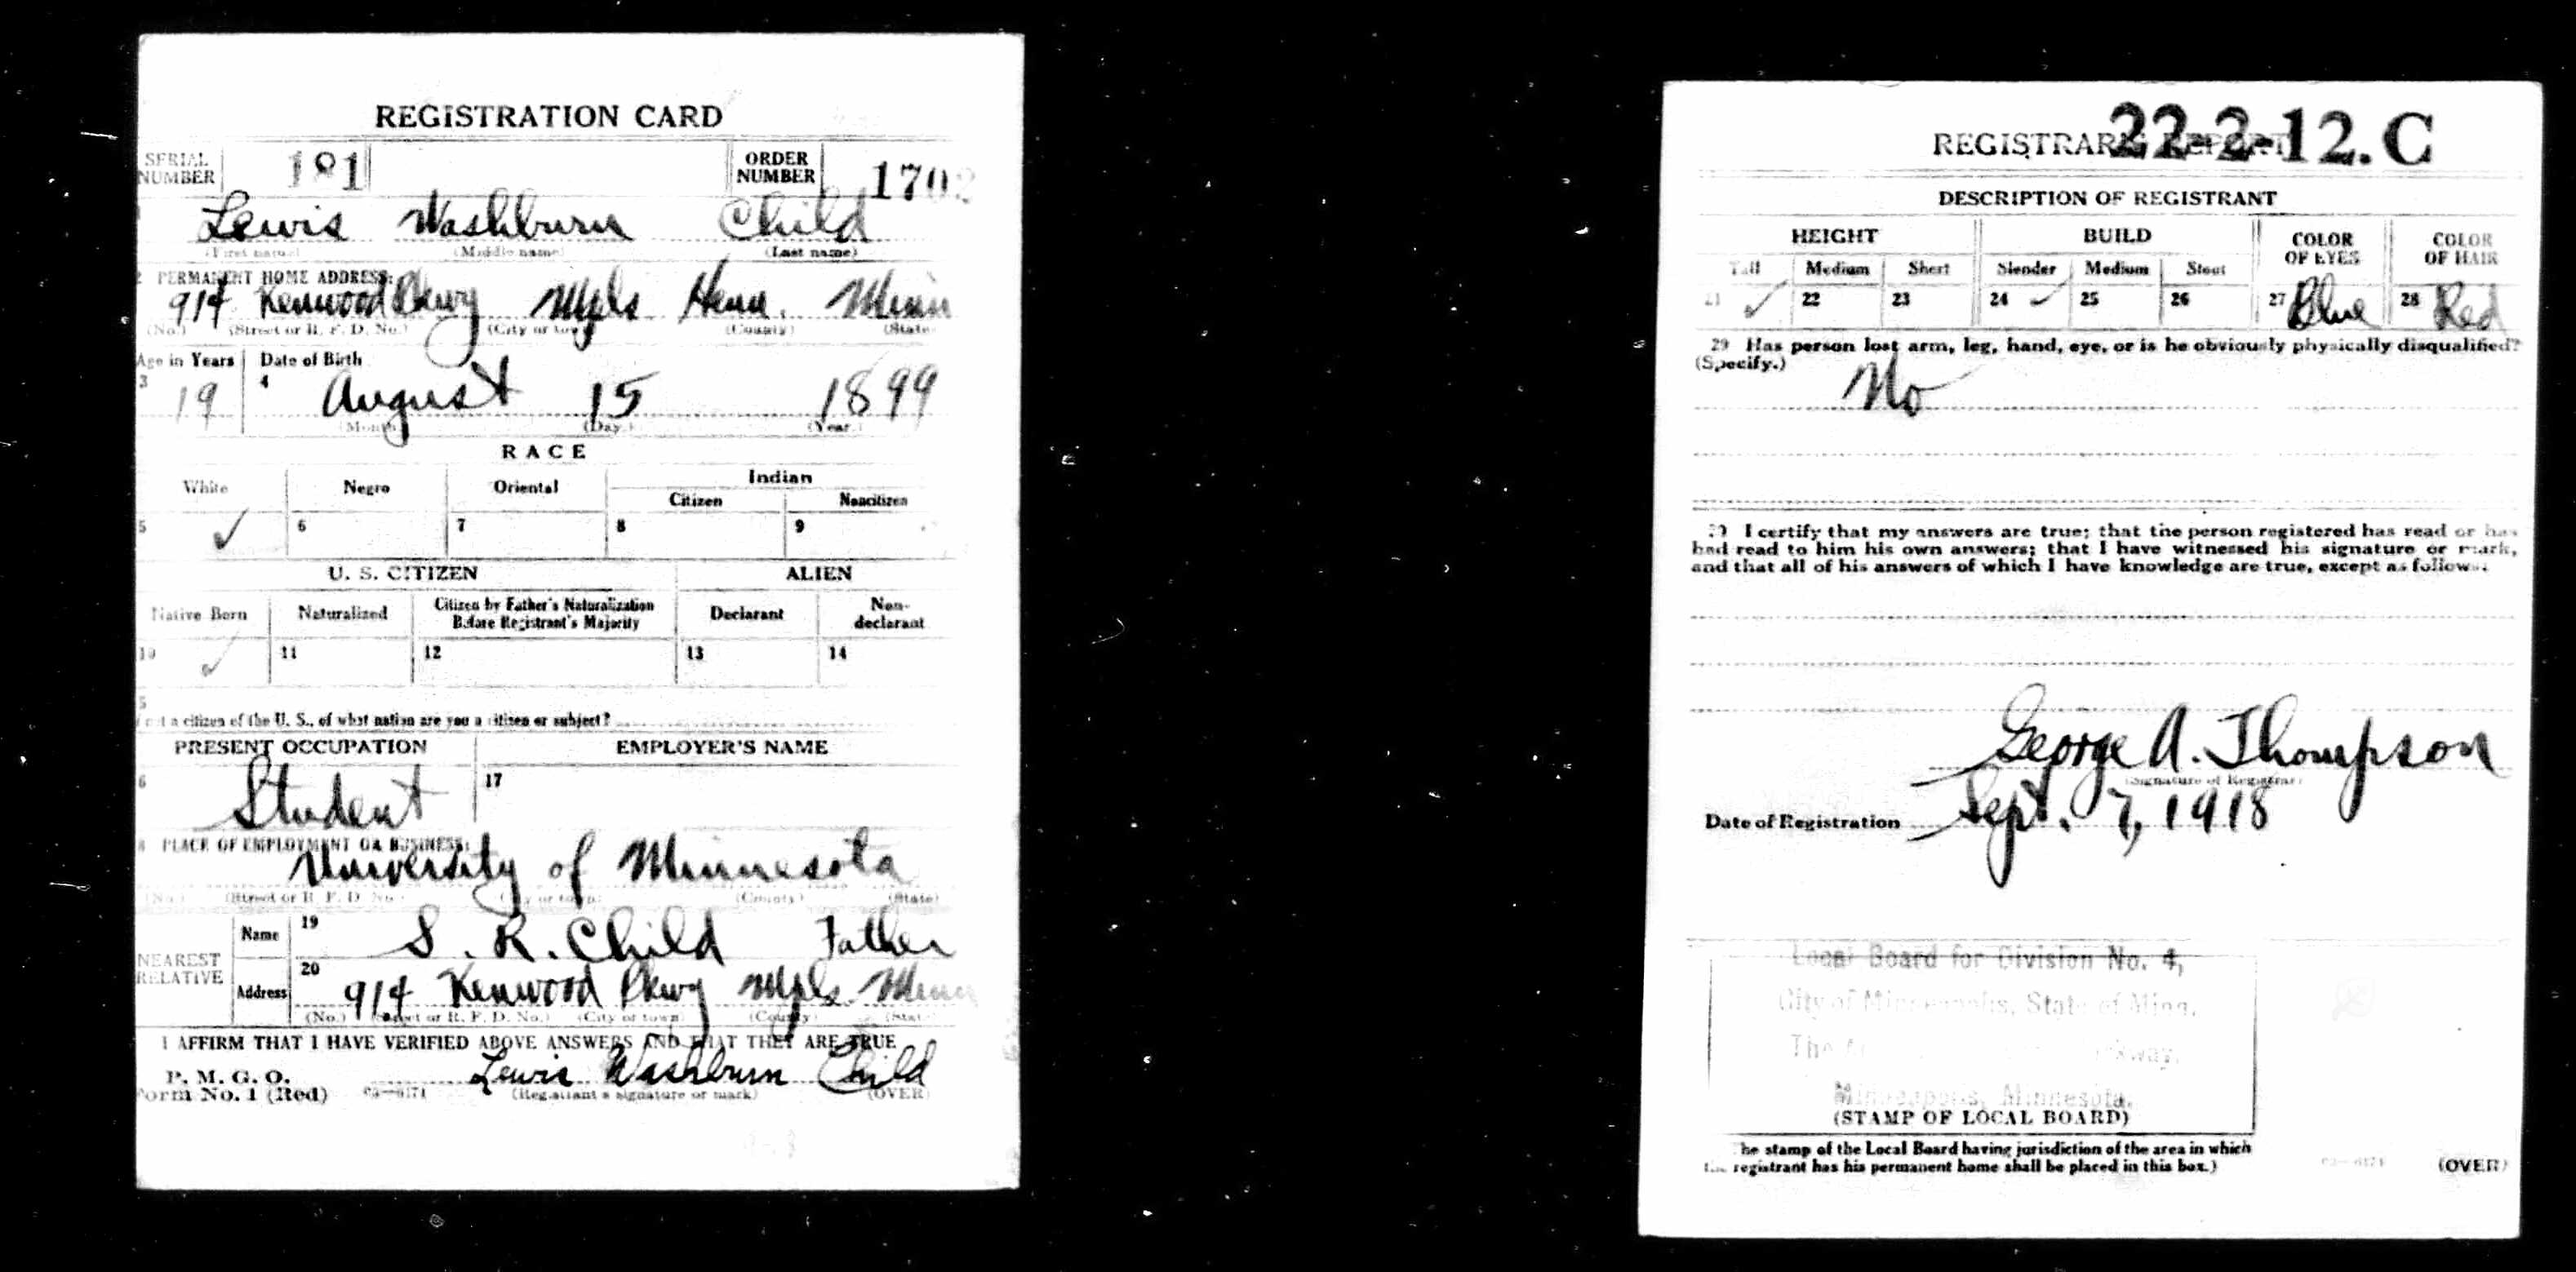 REGISTRATION CARD
SERIAL NUMBER 181 ORDER NUMBER 1702
1 Lewis Washburn Child
(First name) (Middle name) (Last name)
2 PERMANENT HOME ADDRESS:
914 Kenwood Pkwy Mpls Henn. Minn
(No.) (Street or R. F. D. No.) (City or town) (County) (State)
Age in Years Date of Birth
3 19 4 August 15 1899
(Month.) (Day.) (Year.)
RACE
White Negro Oriental Indian
Citizen Noncitizen
5 ✓ 6 7 8 9
U. S. CITIZEN ALIEN
Native Born Naturalized Citizen by Father's Naturalization Before Registrant's Majority Declarant Non-declarant
10 ✓ 11 12 13 14
5
not a citizen of the U. S., of what nation are you a citizen or subject?
PRESENT OCCUPATION EMPLOYER'S NAME
6 Student 17
8 PLACE OF EMPLOYMENT OR BUSINESS:
University of Minnesota
(No.) (Street or R. F. D. No.) (City or town) (County) (State)
NEAREST RELATIVE Name 19 S. R. Child Father
Address 20 914 Kenwood Pkwy Mpls Minn
(No.) (Street or R. F. D. No.) (City or town) (County) (State)
I AFFIRM THAT I HAVE VERIFIED ABOVE ANSWERS AND THAT THEY ARE TRUE
P. M. G. O.
Form No. 1 (Red) 03—6171 Lewis Washburn Child
(Registrant's signature or mark) (OVER)
REGISTRAR'S REPORT 22-2-12. C
DESCRIPTION OF REGISTRANT
HEIGHT BUILD COLOR OF EYES COLOR OF HAIR
Tall Medium Short Slender Medium Stout
21 ✓ 22 23 24 ✓ 25 26 27 Blue 28 Red
29 Has person lost arm, leg, hand, eye, or is he obviously physically disqualified?
(Specify.) No
30 I certify that my answers are true; that the person registered has read or has
had read to him his own answers; that I have witnessed his signature or mark,
and that all of his answers of which I have knowledge are true, except as follows:
George A. Thompson
(Signature of Registrar)
Date of Registration Sept. 7, 1918
Local Board for Division No. 4,
City of Minneapolis, State of Minn.
The
Minneapolis, Minnesota.
(STAMP OF LOCAL BOARD)
The stamp of the Local Board having jurisdiction of the area in which
the registrant has his permanent home shall be placed in this box.)
03—6171 (OVER)